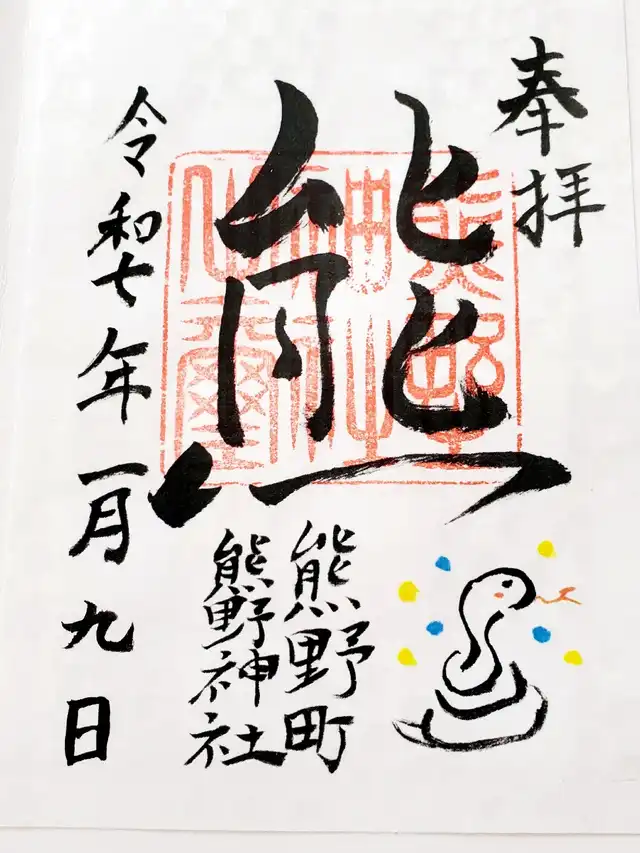 奉拝
熊
熊野町
熊野神社
令和七年一月九日